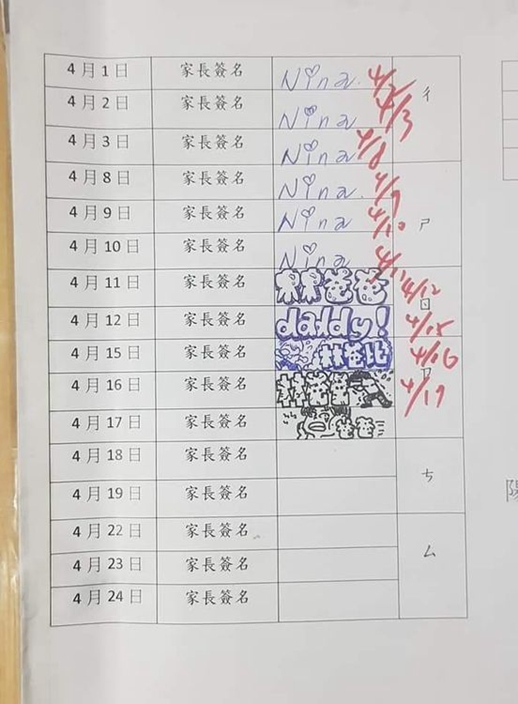 4月1日 家長簽名 Nina 4/2
4月2日 家長簽名 Nina 4/3 ㄔ
4月3日 家長簽名 Nina 4/8
4月8日 家長簽名 Nina 4/9
4月9日 家長簽名 Nina 4/10 ㄕ
4月10日 家長簽名 Nina 4/11
4月11日 家長簽名 林爸爸 4/12 ㄖ
4月12日 家長簽名 daddy! 4/15
4月15日 家長簽名 林老北 4/16 ㄗ
4月16日 家長簽名 4/17
4月17日 家長簽名 爸爸
4月18日 家長簽名 ㄘ
4月19日 家長簽名
4月22日 家長簽名
4月23日 家長簽名 ㄙ
4月24日 家長簽名